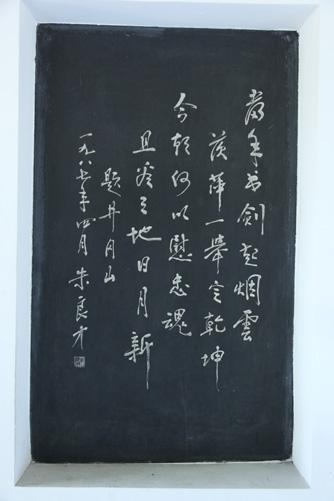 當年书劍起烟雲
茨萍一舉定乾坤
今朝何以慰忠魂
且地日月新
題井冈山
一九八七年四月 朱良才